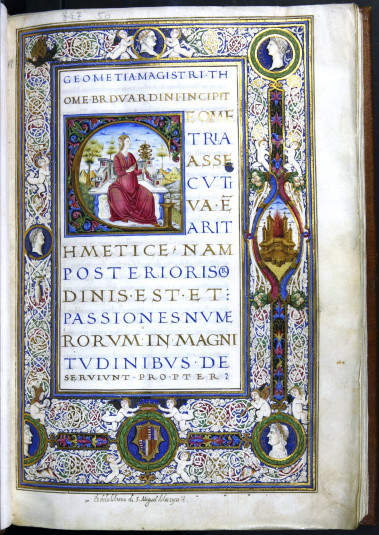 GEOMETIA·MAGISTRI·TH
OME·BRDVARDINI·INCIPIT
EOME
TRIA
ASSE
CUTI
VA·Ē
ARIT
HMETICE·NAM
POSTERIORIS
DINIS·EST·ET:
PASSIONES NUME
RORUM·IN MAGNI
TUDINIBUS·DE
SERVIUNT·PROPTER